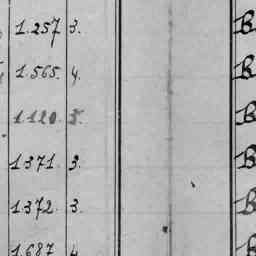 1.257 3. B
1.565. 4. B
1.120. 5. B
1371. 3. B
1.372. 3. B
1.687 4. B